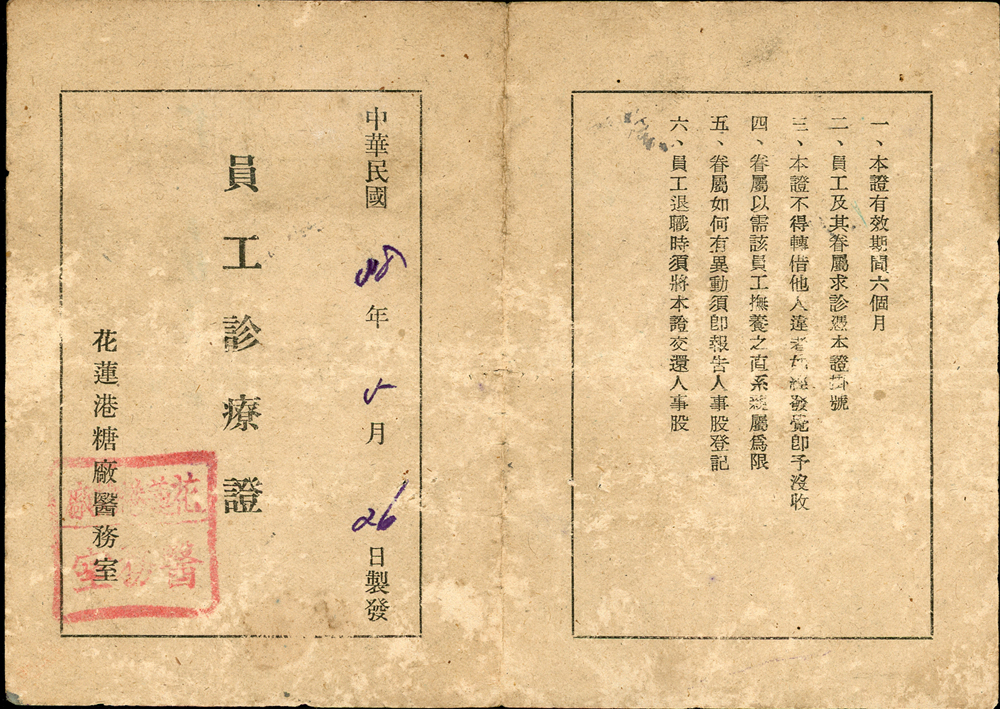 一、本證有效期間六個月
二、員工及其眷屬求診憑本證掛號
三、本證不得轉借他人違者如經發覺即予沒收
四、眷屬以需該員工撫養之直系親屬為限
五、眷屬如何有異動須即報告人事股登記
六、員工退職時須將本證交還人事股
中華民國 38 年 5 月 26 日製發
員工診療證
花蓮港糖廠醫務室
花蓮港糖廠
醫務室